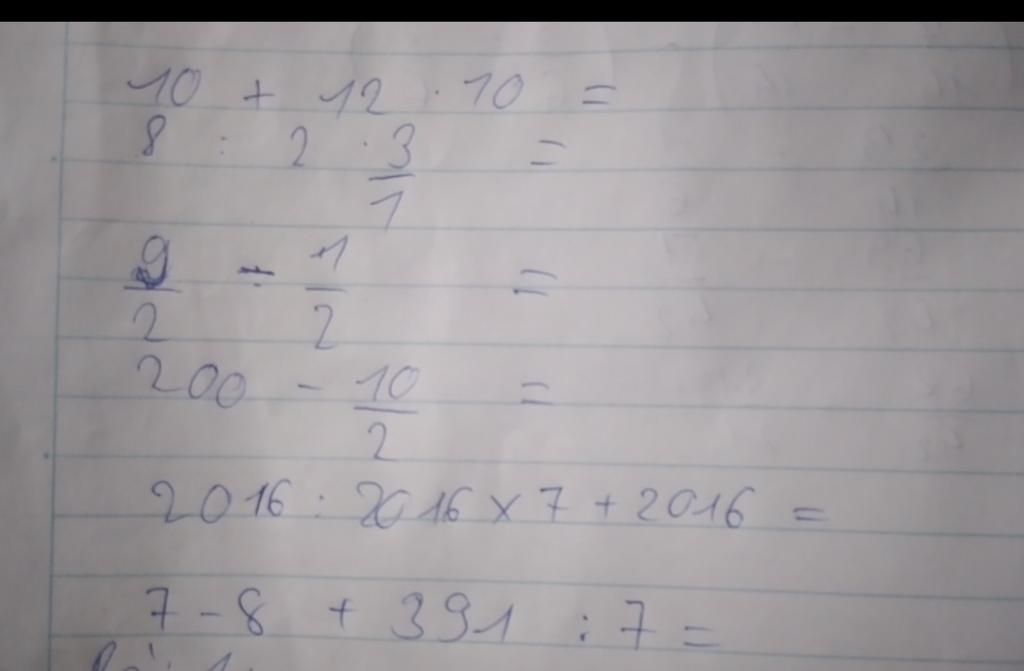 10 + 12 · 10 =
8 : 2 · 3/1 =
9/2 - 1/2 =
200 - 10/2 =
2016 : 2016 x 7 + 2016 =
7 - 8 + 391 : 7 =